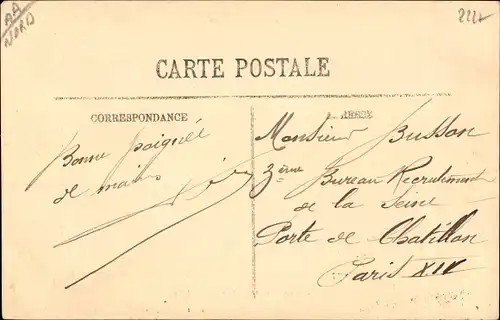 AA
NORD
CARTE POSTALE
CORRESPONDANCE
ADRESSE
Bonne poignée
de mains
Monsieur Busson
3ème Bureau Recrutement
de la Seine
Porte de Chatillon
Paris XIV